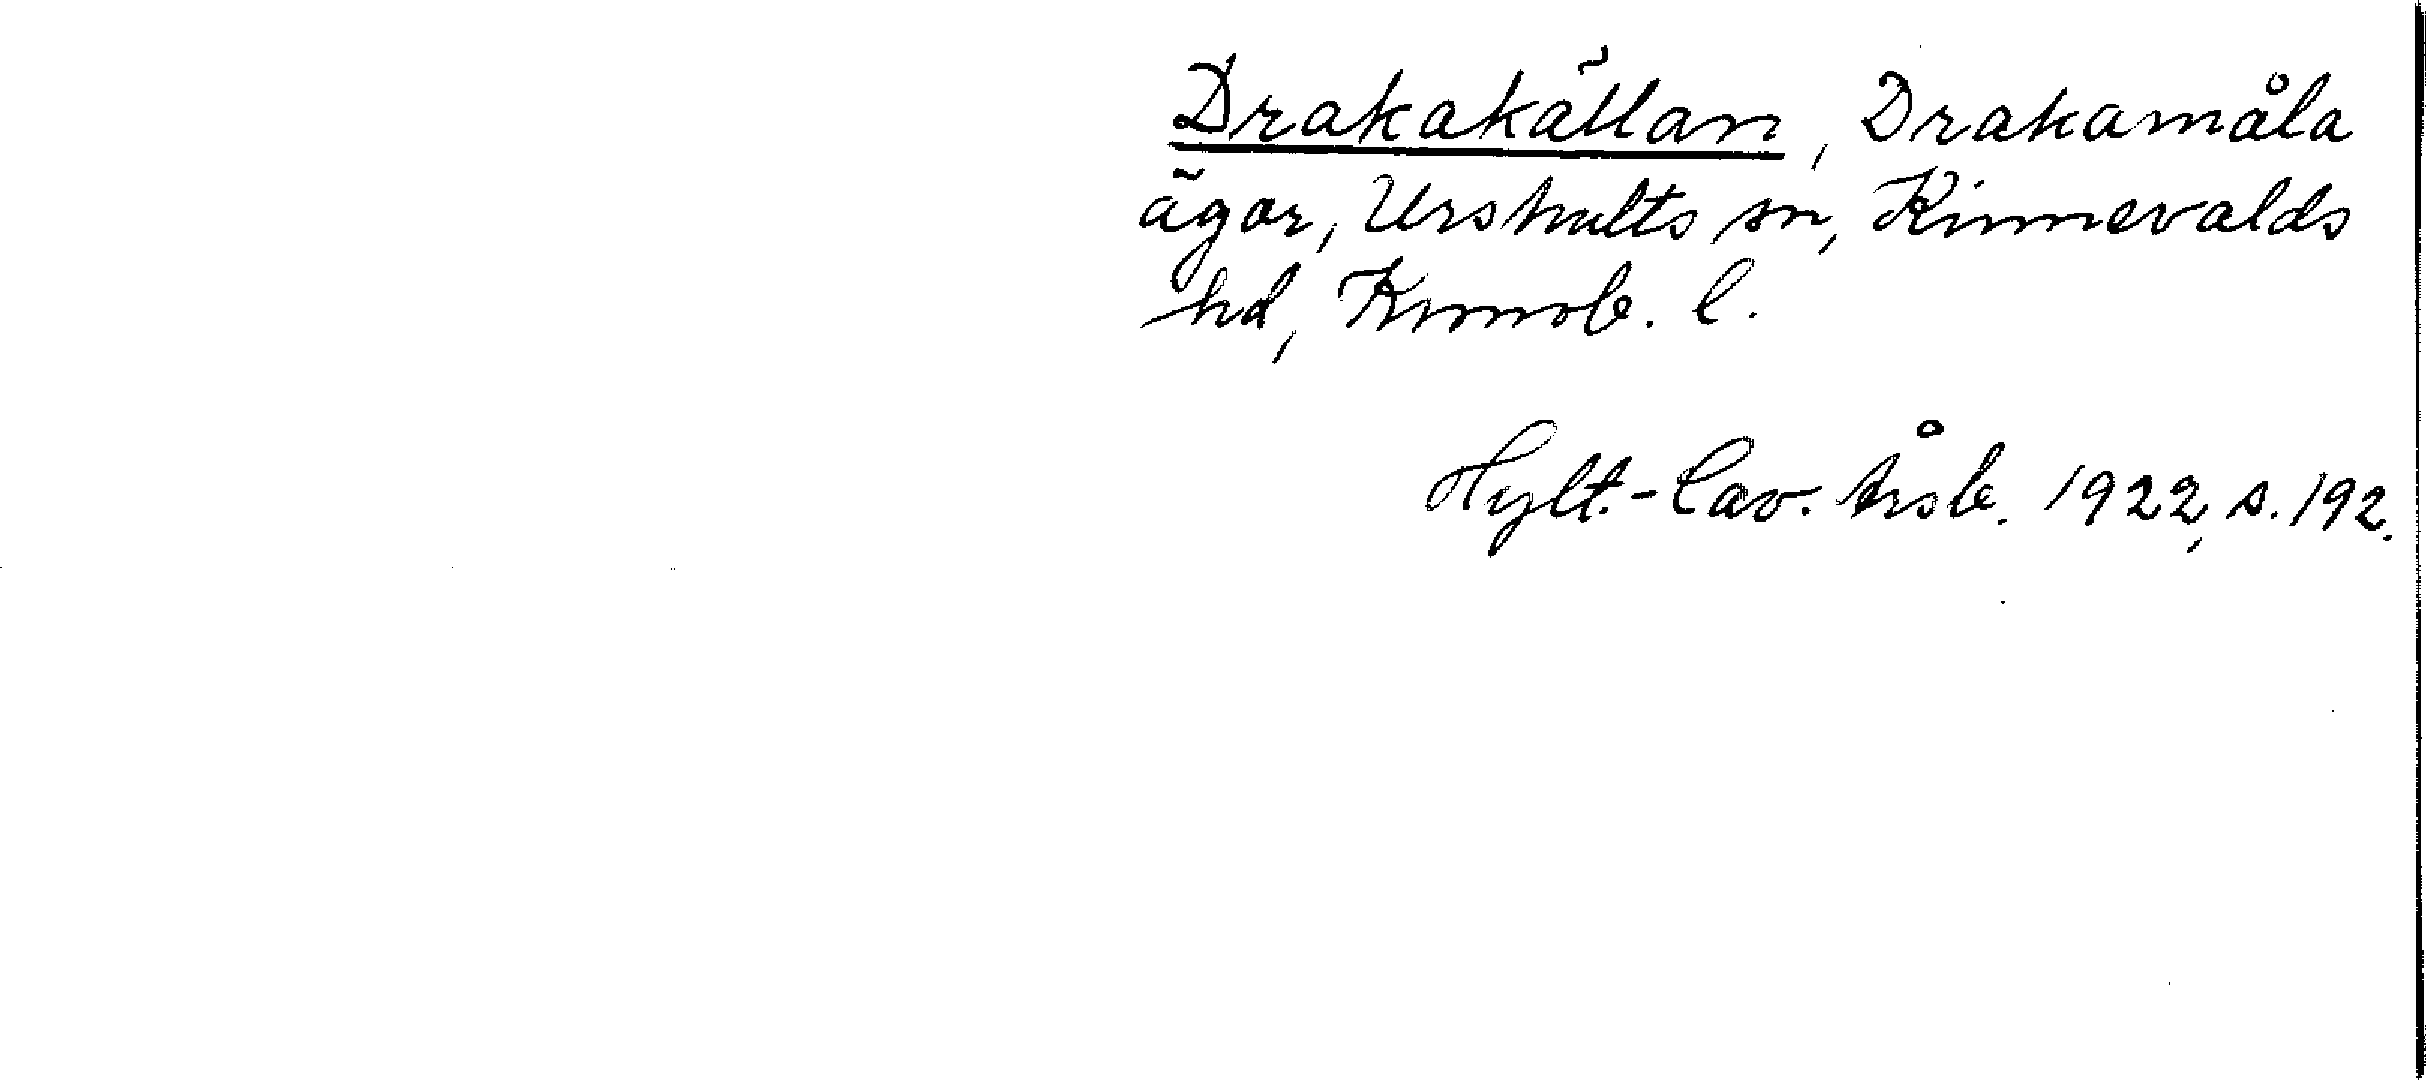 Drakakällan, Drakamåla
ägor, Urshults sn, Kinnevalds
hd, Kronob. l.
Hylt.-Cav. Årsb. 1922, s. 192.